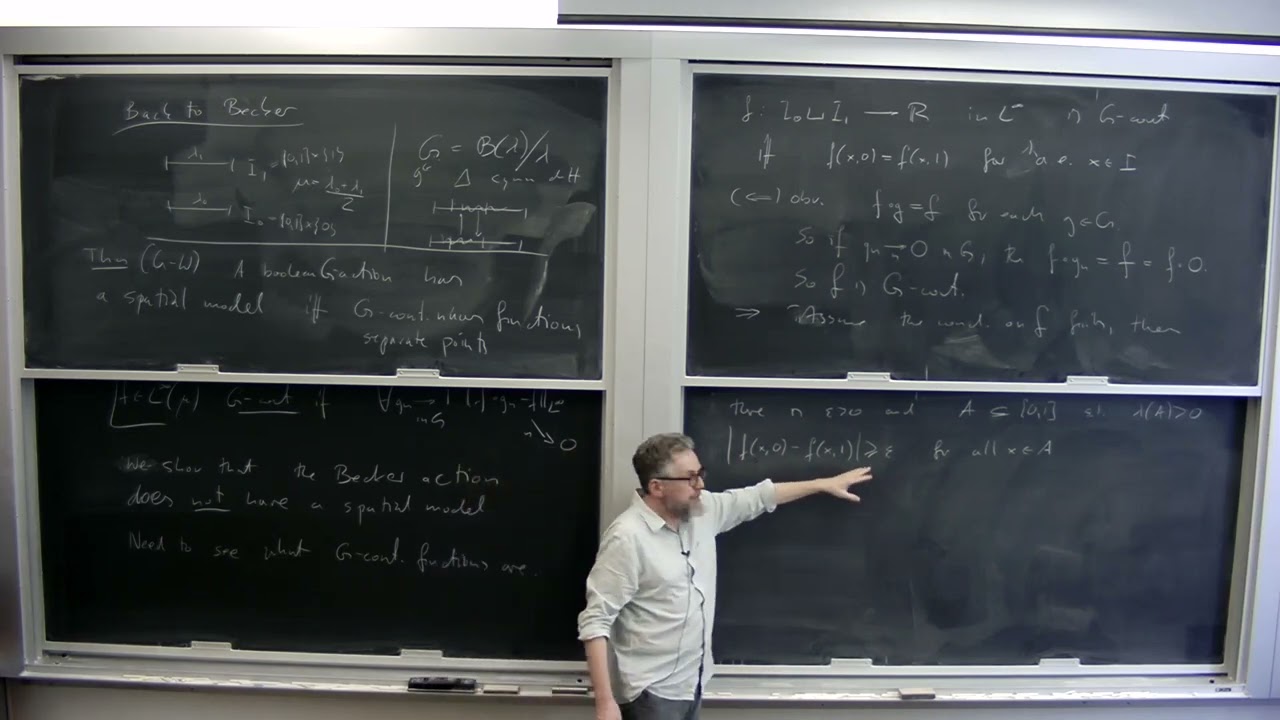 Back to Becker
λ₁ I₁ = [0,1]×{1}
μ = (λ₀+λ₁)/2
λ₀ I₀ = [0,1]×{0}
G = B(λ)/λ
Δ symm diff
Thm (G-W) A boolean G action has
a spatial model iff G-continuous functions
separate points
f∈L^∞(μ) G-cont if ∀gₙ → 1
in G
→ 0
We show that the Becker action
does not have a spatial model
Need to see what G-cont. functions are.
f: I₀⊔I₁ → R in L^∞ is G-cont
iff f(x,0)=f(x,1) for λ a.e. x∈I
(⇐) obv. f∘g=f for each g∈G
So if gₙ→0 in G, then f∘gₙ = f = f∘0.
So f is G-cont.
⇒ Assume the cond. on f fails, then
there is ε>0 and A ⊆ [0,1] st. λ(A)>0
|f(x,0)-f(x,1)|≥ε for all x∈A